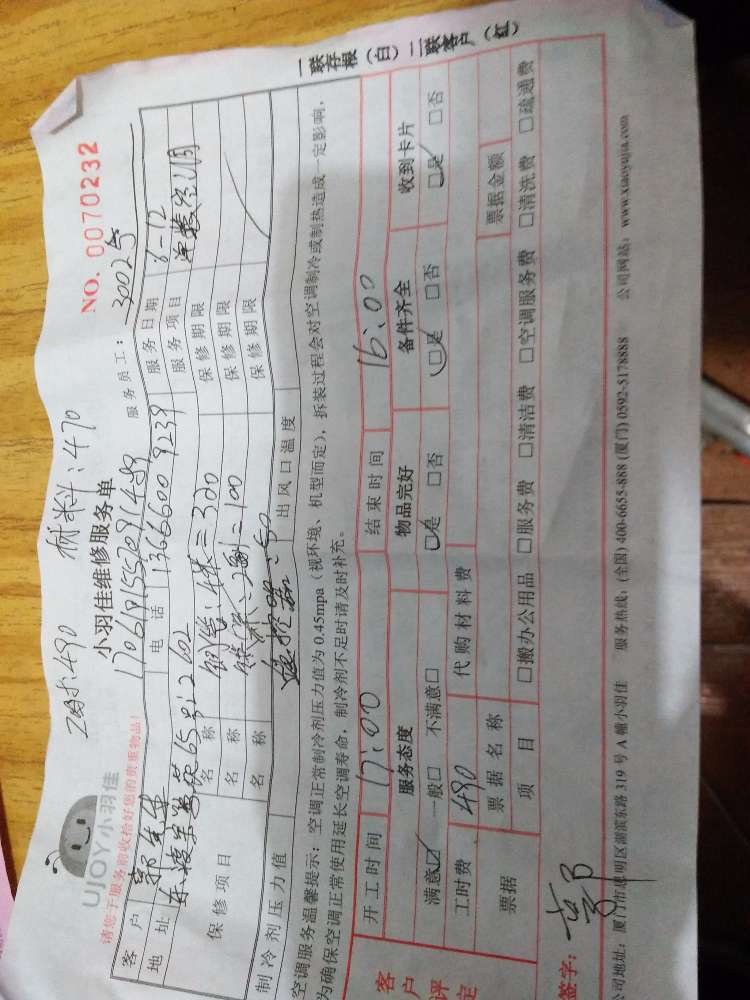 一联存根（白）二联客户（红）
工时:490 材料:470
UJOY小羽佳
小羽佳维修服务单
NO. 0070232
请您于服务前收拾好您的贵重物品！
服务员工：3002号
客户
电话 13666009239
服务日期 6-12
地址
服务项目
保修项目
名称 铜管:4米=320
保修期限
名称
保修期限
名称
保修期限
制冷剂压力值
出风口温度
空调服务温馨提示：空调正常制冷剂压力值为0.45mpa（视环境、机型而定），拆装过程会对空调制冷或制热造成一定影响，
为确保空调正常使用延长空调寿命，制冷剂不足时请及时补充。
客户评定
开工时间 17:00 结束时间 16:00
服务态度 物品完好 备件齐全 收到卡片
满意☑ 一般□ 不满意□ ☑是 □否 ☑是 □否 ☑是 □否
工时费 490 代购材料费
票据 票据名称 票据金额
项目 □搬办公用品 □服务费 □清洁费 □空调服务费 □清洗费 □疏通费
签字：
公司地址：厦门市思明区湖滨东路319号A幢小羽佳 服务热线：(全国) 400-6655-888 (厦门) 0592-5178888 公司网站：www.xiaoyujia.com